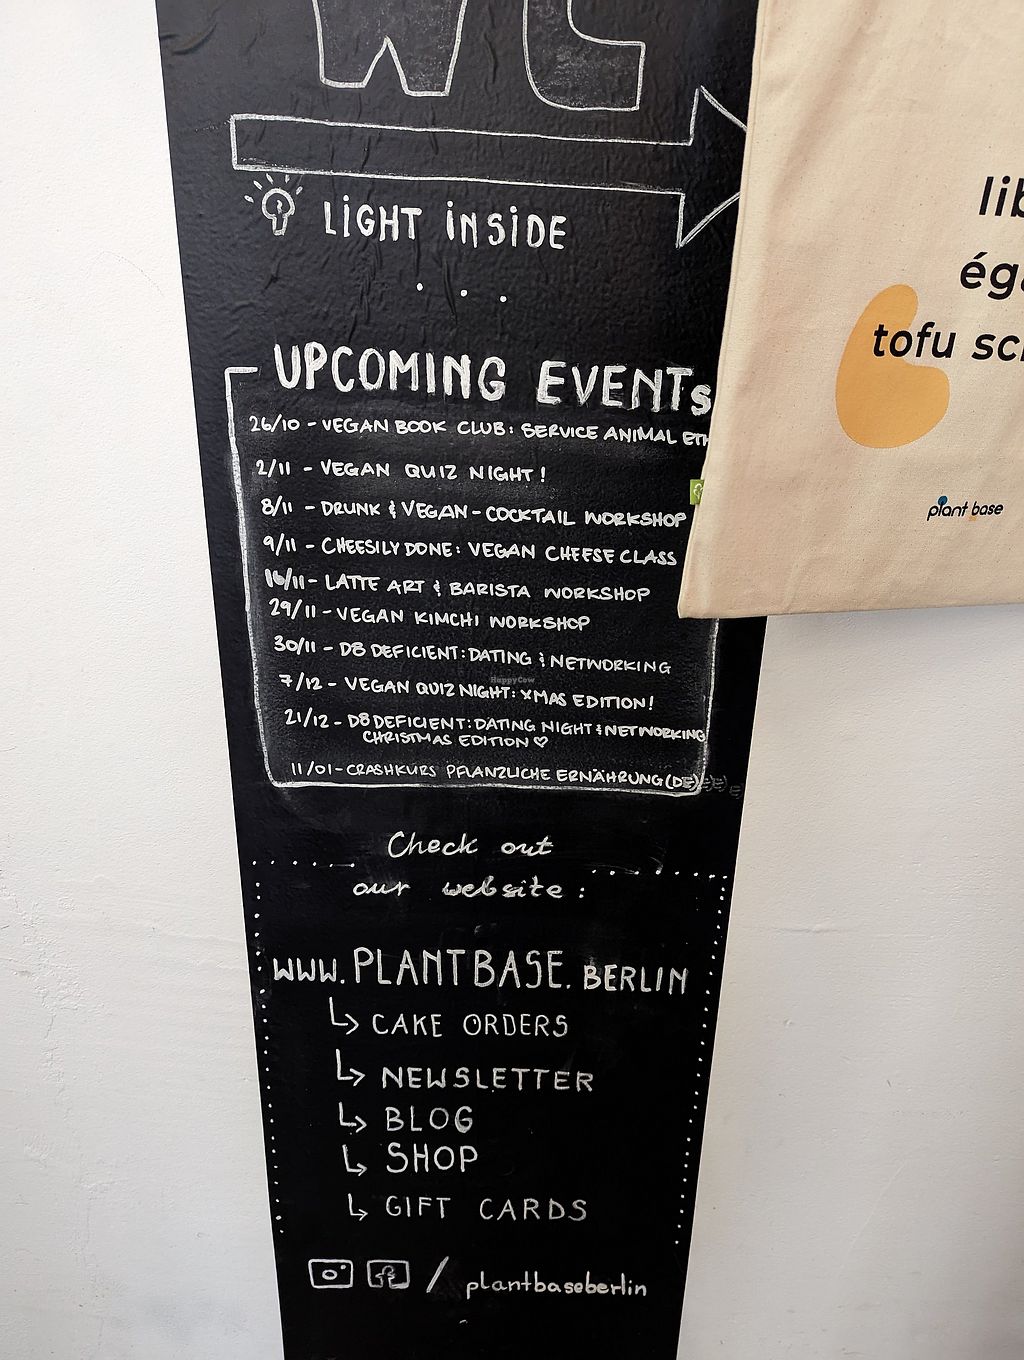 WC
LIGHT INSIDE
...
UPCOMING EVENTS
26/10 - VEGAN BOOK CLUB: SERVICE ANIMAL
2/11 - VEGAN QUIZ NIGHT!
8/11 - DRUNK & VEGAN - COCKTAIL WORKSHOP
9/11 - CHEESILY DONE: VEGAN CHEESE CLASS
16/11 - LATTE ART & BARISTA WORKSHOP
29/11 - VEGAN KIMCHI WORKSHOP
30/11 - D8 DEFICIENT: DATING & NETWORKING
7/12 - VEGAN QUIZ NIGHT: XMAS EDITION!
21/12 - D8 DEFICIENT: DATING NIGHT & NETWORKING
CHRISTMAS EDITION ♡
11/01 - CRASHKURS PFLANZLICHE ERNÄHRUNG (DE)
Check out
our website:
www.PLANTBASE.BERLIN
↳ CAKE ORDERS
↳ NEWSLETTER
↳ BLOG
↳ SHOP
↳ GIFT CARDS
/ plantbaseberlin
tofu
plant base
HappyCow